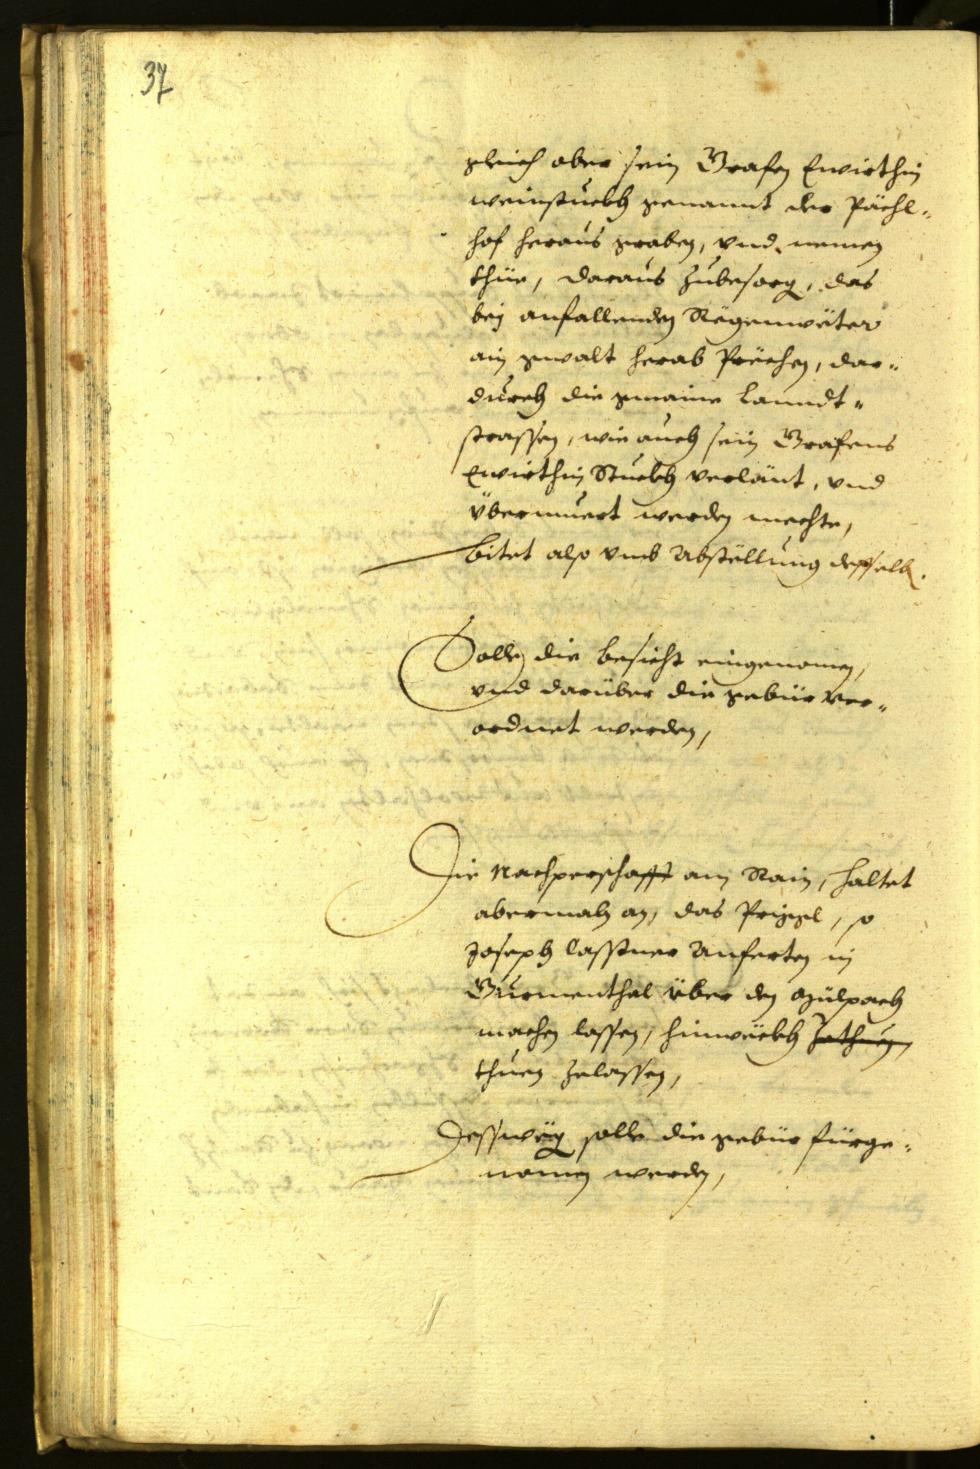 37
gleich ober sein Grafen Ewirthin
weinstuckh genannt der Pächl„
hof heraus graben, vnd nemen
thüe, daraus zubesorg, das
bey anfallenden Regenweter
ain gwalt herab Prechen, dar„
durch die gmaine Lanndt„
strassen, wie auch sein Grafens
Ewirthin Stuckh verlänt, vnd
übermuert werden mechte,
bitet also vmb Abstellung desselb.
Solle die besicht eingenomen,
vnd darüber die gebür ver„
ordnet werden,
Die Nachperschafft am Rain, haltet
abermals an, das Priggl, so
Joseph Casstner Anferten in
Gurmenthal über den Mülpach
machen lassen, hinweckh
thuen zelassen,
Desswëg solle die gebür fürge„
nomen werden,